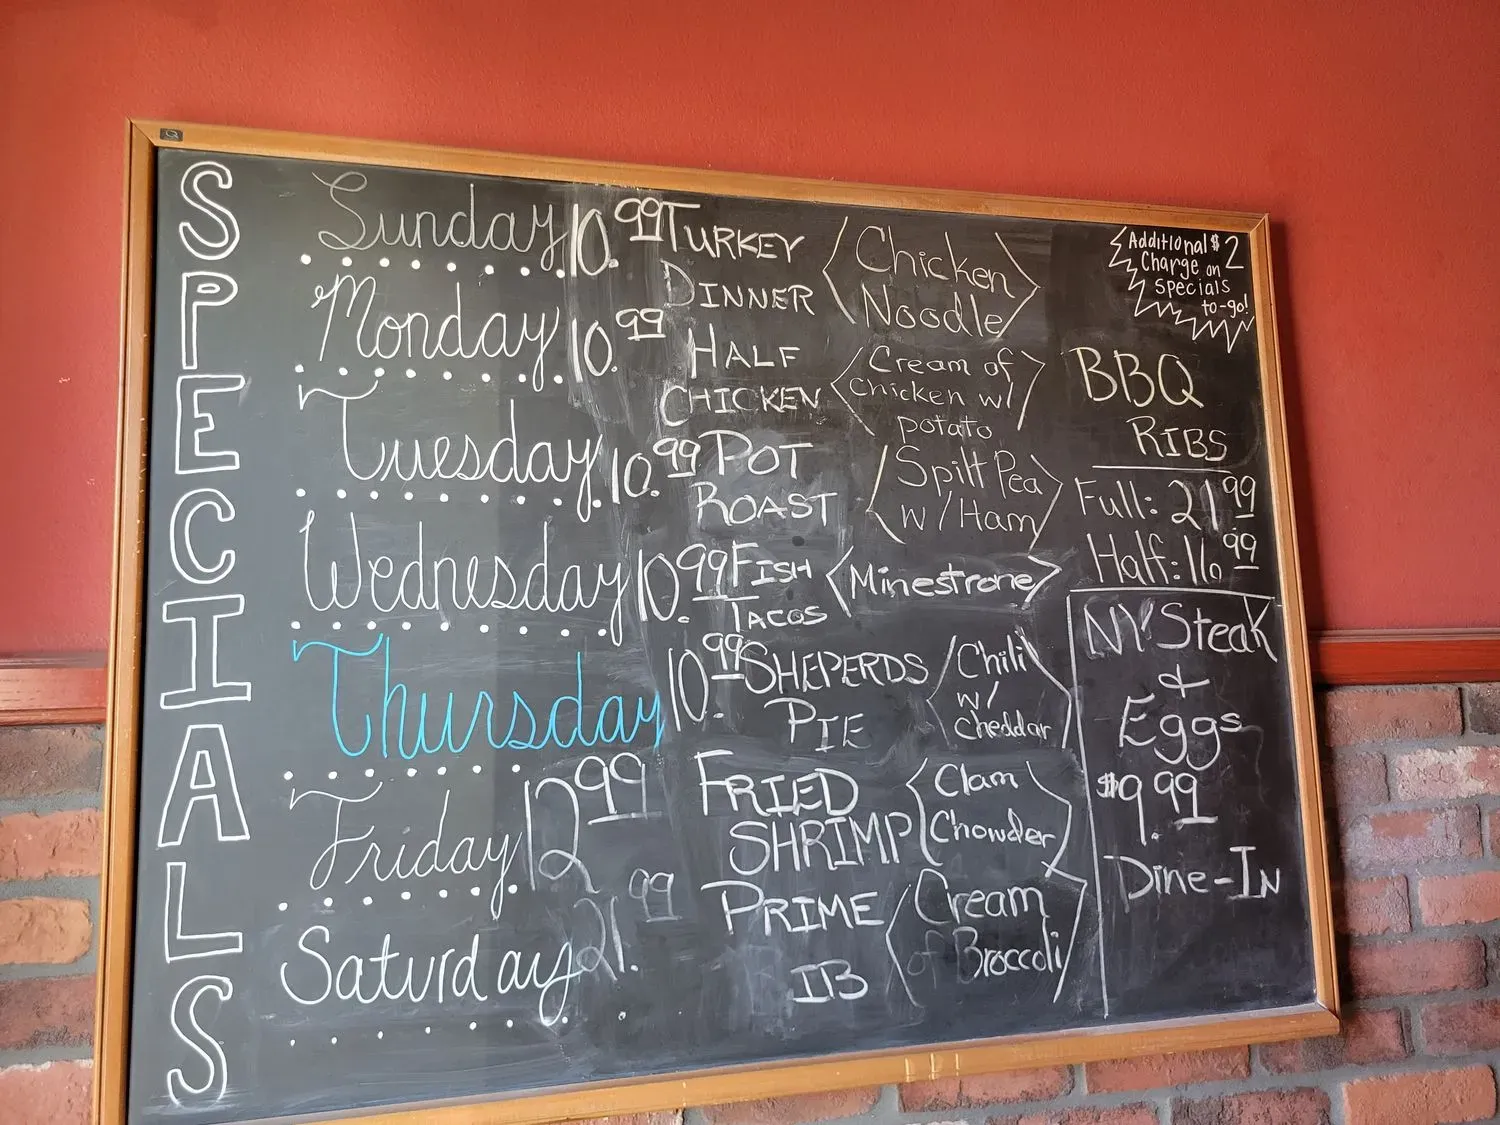 SPECIALS
Sunday 10.99 TURKEY
DINNER
Chicken
Noodle
Monday 10.99 HALF
CHICKEN
Cream of
Chicken w/
potato
Tuesday 10.99 POT
ROAST
Spilt Pea
w/ Ham
Wednesday 10.99 FISH
TACOS
Minestrone
Thursday 10.99 SHEPERDS
PIE
Chili
w/
Cheddar
Friday 12.99 FRIED
SHRIMP
Clam
Chowder
Saturday 21.99 PRIME
Cream
of Broccoli
Additional $2
Charge on
Specials
to-go!
BBQ
RIBS
Full: 21.99
Half: 16.99
NY Steak
&
Eggs
$9.99
Dine-In